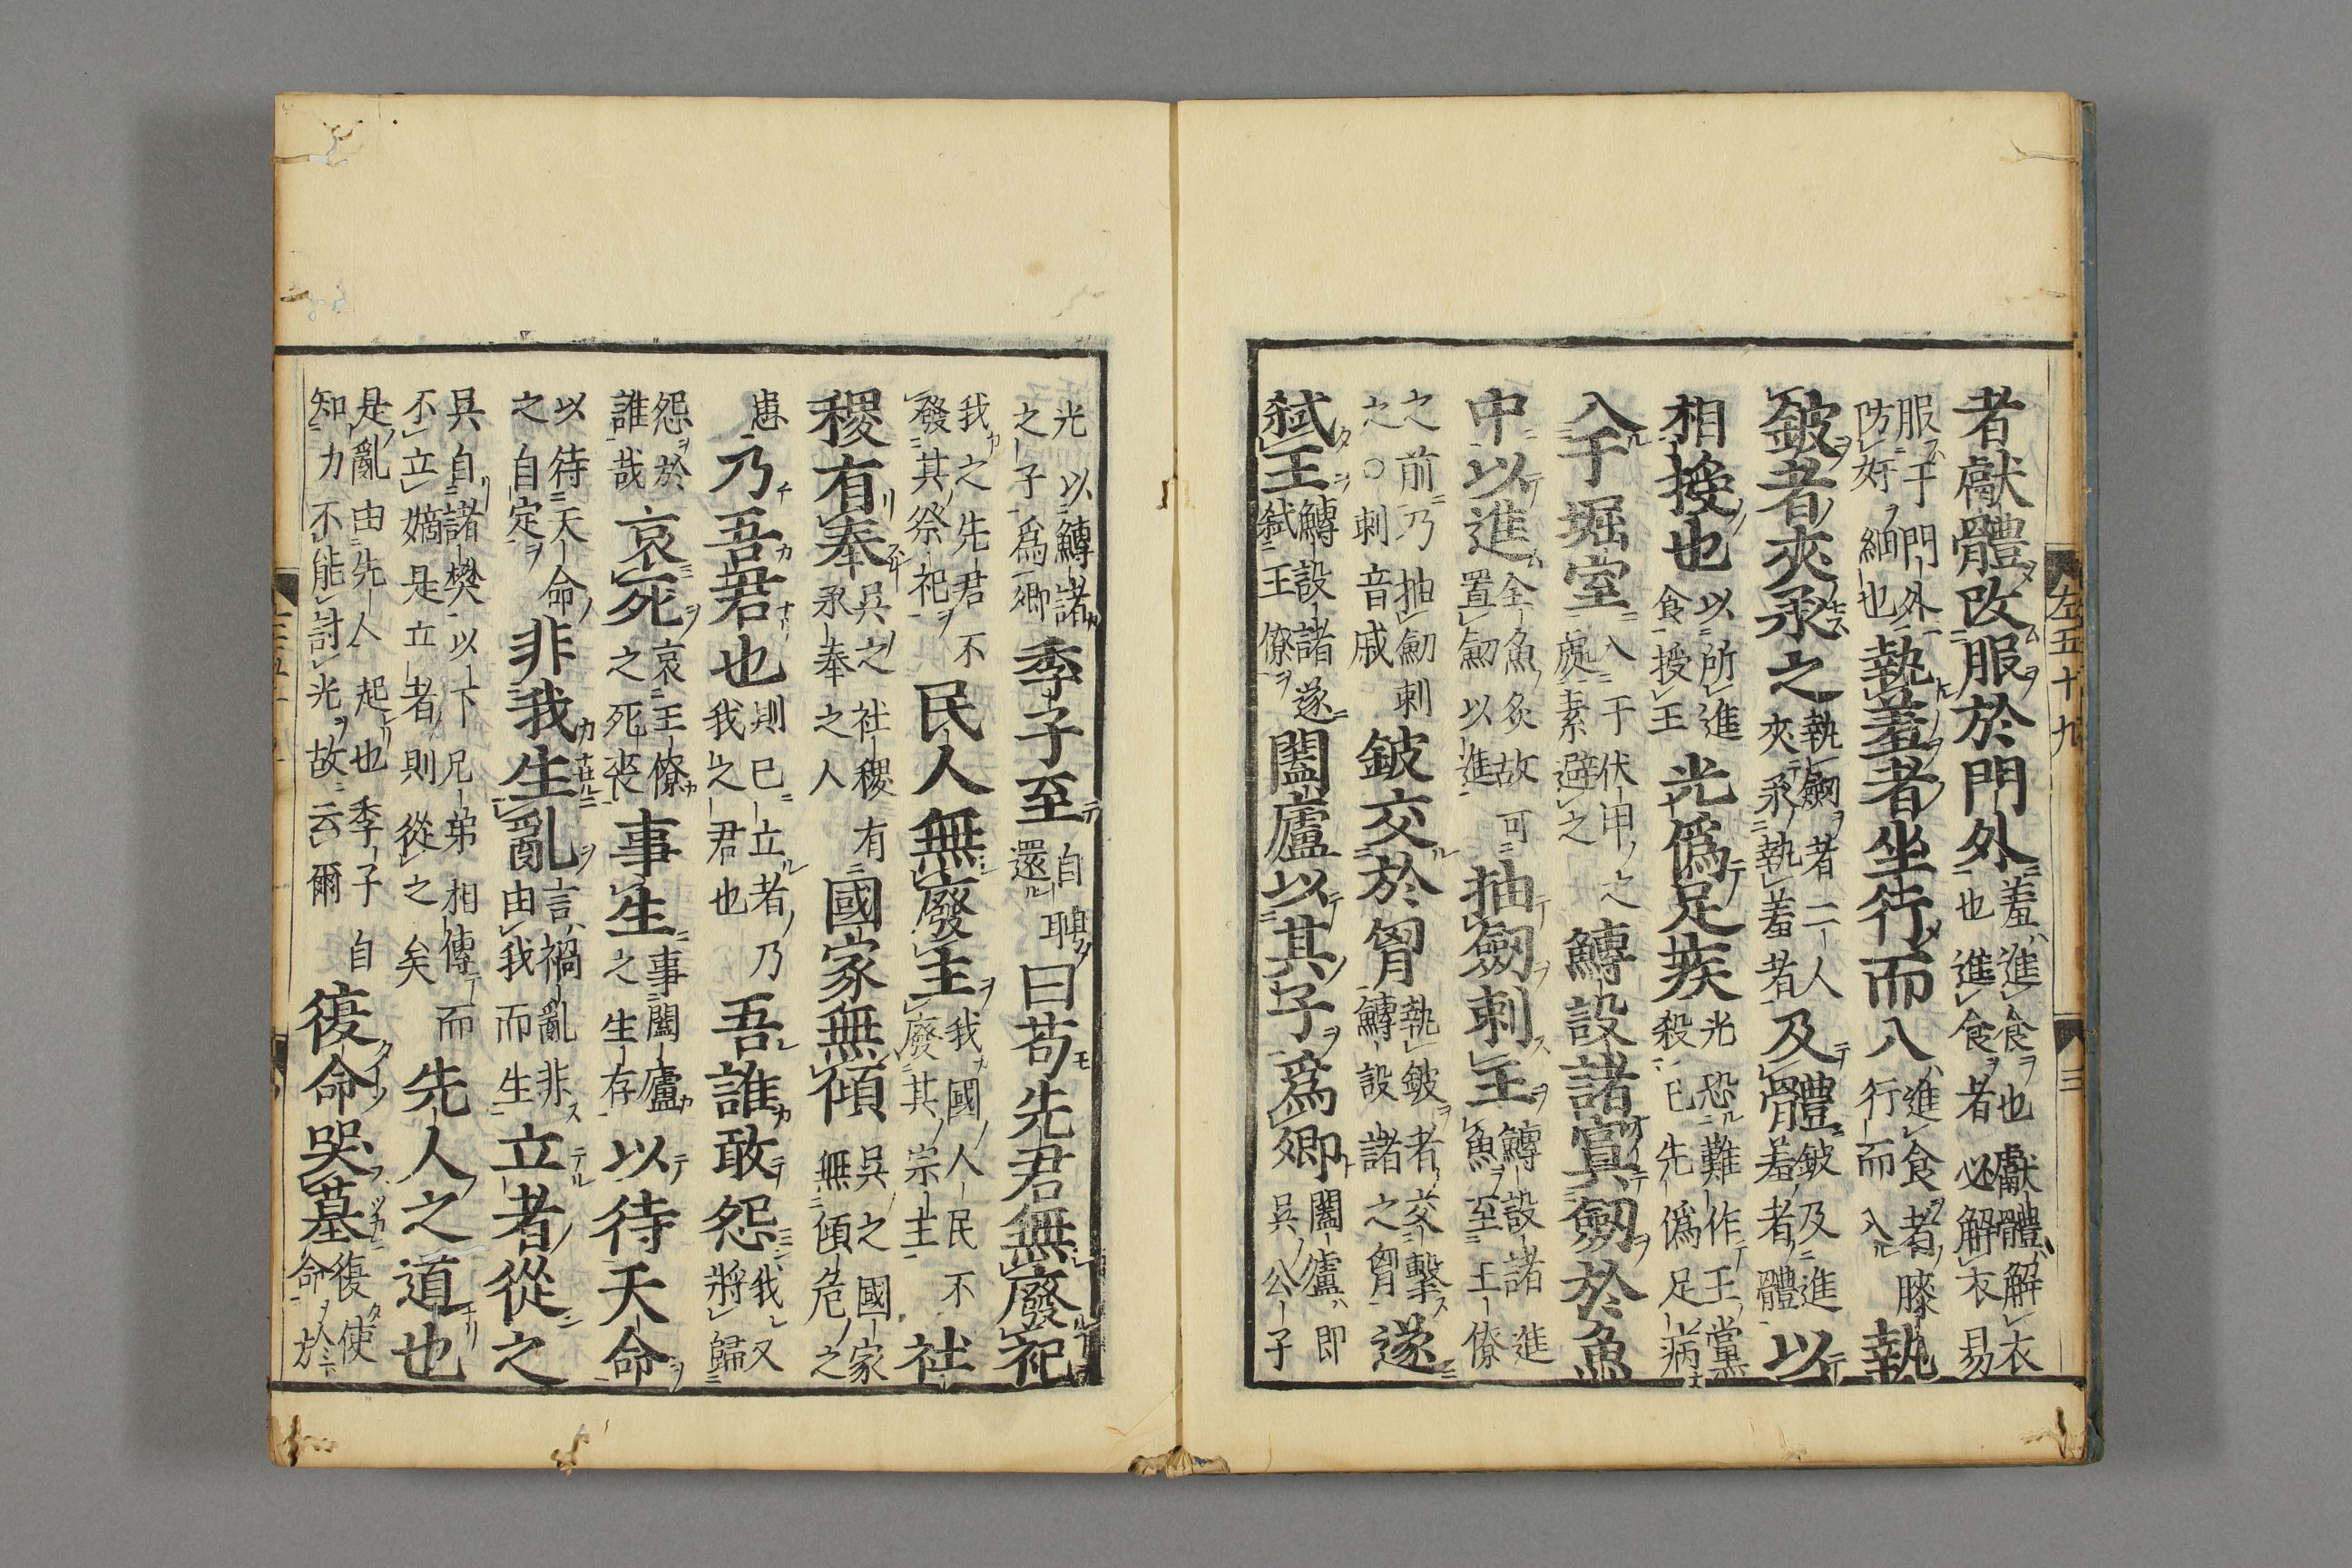 者獻體改服於門外羞進食也獻體解衣也進食者必解衣易
服于門外防奸細也執羞者坐行而入進食者膝行而入執
鈹者夾承之執劒者二人夾承執羞者及體鈹及進羞者體以
相授也以所進食授王光僞足疾光恐難作王黨殺已先僞足病
入于堀室入于伏甲之處素避之鱄設諸寘劒於魚
中以進全魚炙故可置劒以進抽劒刺王鱄設諸進魚至王僚
之前乃抽劒刺之○刺音戚鈹交於胷執鈹者交擊鱄設諸之胷遂
弑王鱄設諸遂弑王僚闔廬以其子爲卿闔廬即吳公子
左五十九
三
光以鱄諸之子爲卿季子至自聘還曰苟先君無廢祀
我之先君不發其祭祀民人無廢主我國人民不廢其宗主社
稷有奉吳之社稷有承奉之人國家無傾吳之國家無傾危之
患乃吾君也則已立者乃我之君也吾誰敢怨我又將歸
怨於誰哉哀死哀王僚之死喪事生事闔廬之生存以待天命
以待天命之自定非我生亂言禍亂非由我而生立者從之
吳自諸樊以下兄弟相傳而不立嫡是立者則從之矣先人之道也
是亂由先人起也季子自知力不能討光故云爾復命哭墓復使命於